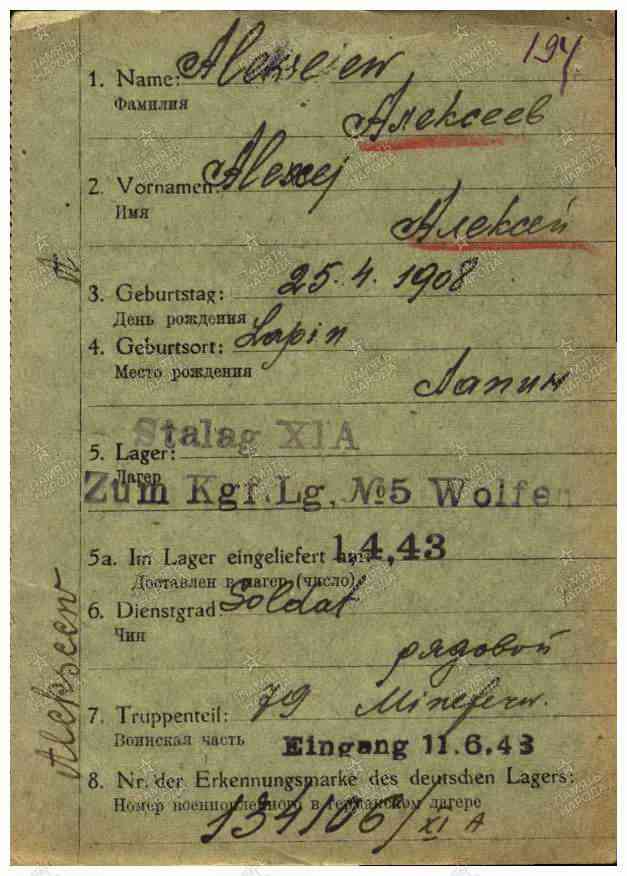 194
1. Name: Alekseiew
Фамилия
Алексеев
2. Vornamen: Alexej
Имя
Алексей
3. Geburtstag: 25.4.1908
День рождения
4. Geburtsort: Lapin
Место рождения
Лапин
Stalag XI A
5. Lager:
Лагер
Zum Kgf.Lg. №5 Wolfen
5a. Im Lager eingeliefert am: 1,4,43
Доставлен в лагер (число)
6. Dienstgrad: Soldat
Чин
рядовой
7. Truppenteil: 79
Воинская часть
Eingang 11.6.43
8. Nr. der Erkennungsmarke des deutschen Lagers:
Номер военнопленного в германском лагере
134106/XI A
Alekseew A